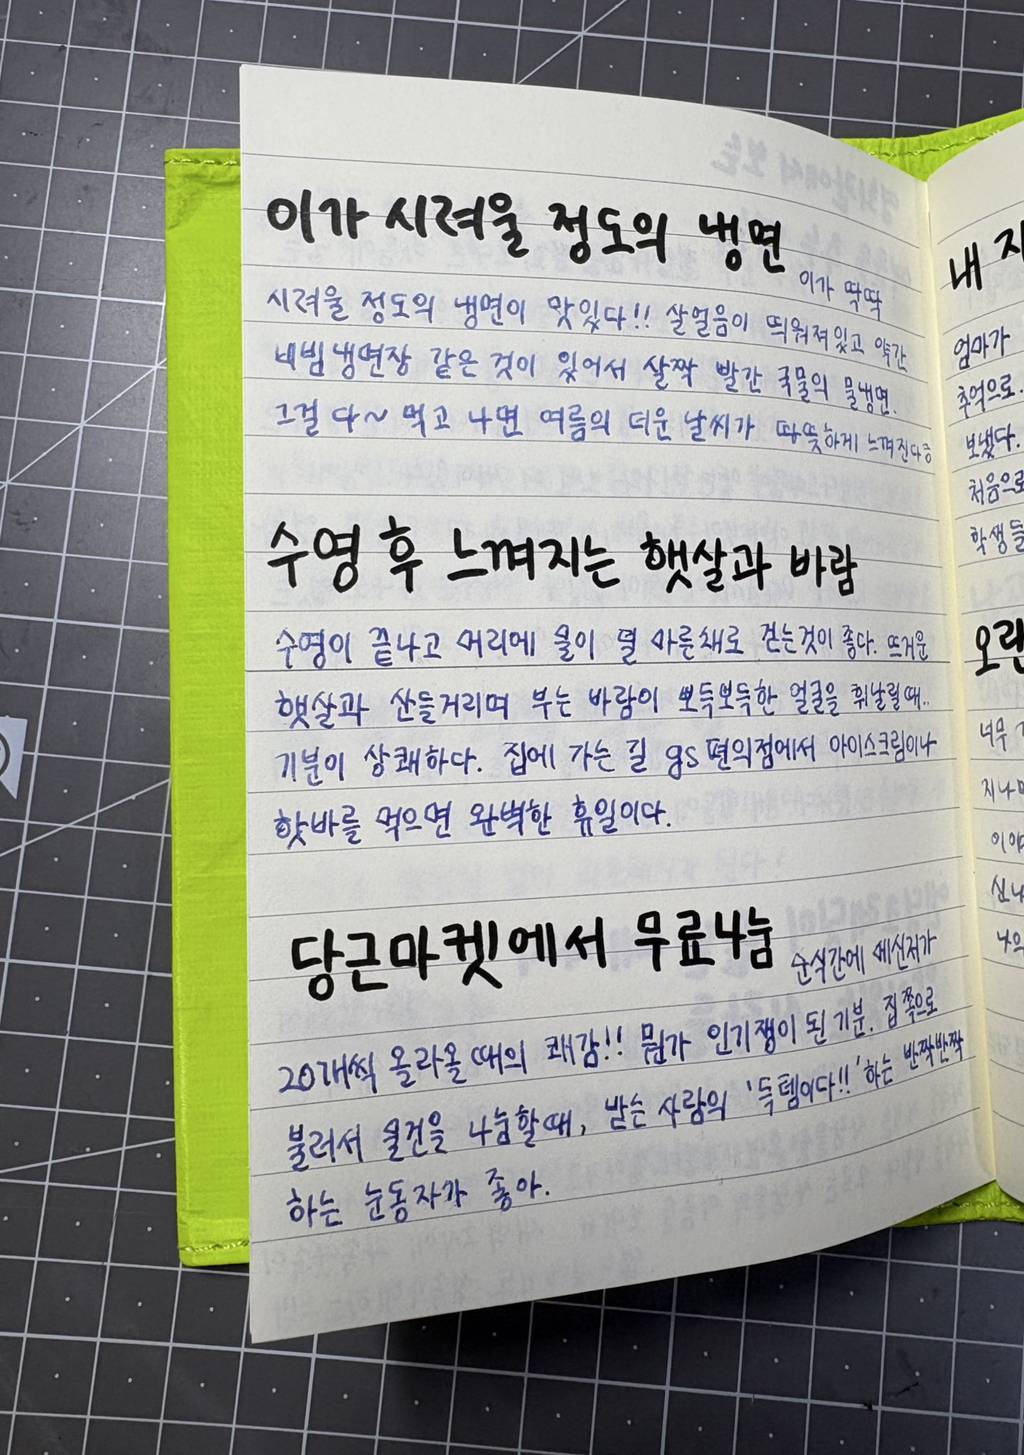 이가 시려울 정도의 냉면
이가 딱딱
시려울 정도의 냉면이 맛있다!! 살얼음이 띄워져있고 약간
비빔냉면장 같은 것이 있어서 살짝 빨간 국물의 물냉면.
그걸 다~ 먹고 나면 여름의 더운 날씨가 따뜻하게 느껴진다ㅎ
수영 후 느껴지는 햇살과 바람
수영이 끝나고 머리에 물이 덜 마른채로 걷는것이 좋다. 뜨거운
햇살과 산들거리며 부는 바람이 뽀득뽀득한 얼굴을 휘날릴때..
기분이 상쾌하다. 집에 가는 길 gs편의점에서 아이스크림이나
핫바를 먹으면 완벽한 휴일이다.
당근마켓에서 무료나눔
순식간에 메신저가
20개씩 올라올때의 쾌감!! 뭔가 인기쟁이 된 기분. 집쪽으로
불러서 물건을 나눔할때, 받는 사람의 '득템이다!!' 하는 반짝반짝
하는 눈동자가 좋아.
내
엄마가
추억으로.
보냈다.
처음으로
학생들
오랜
너무
이야
신나